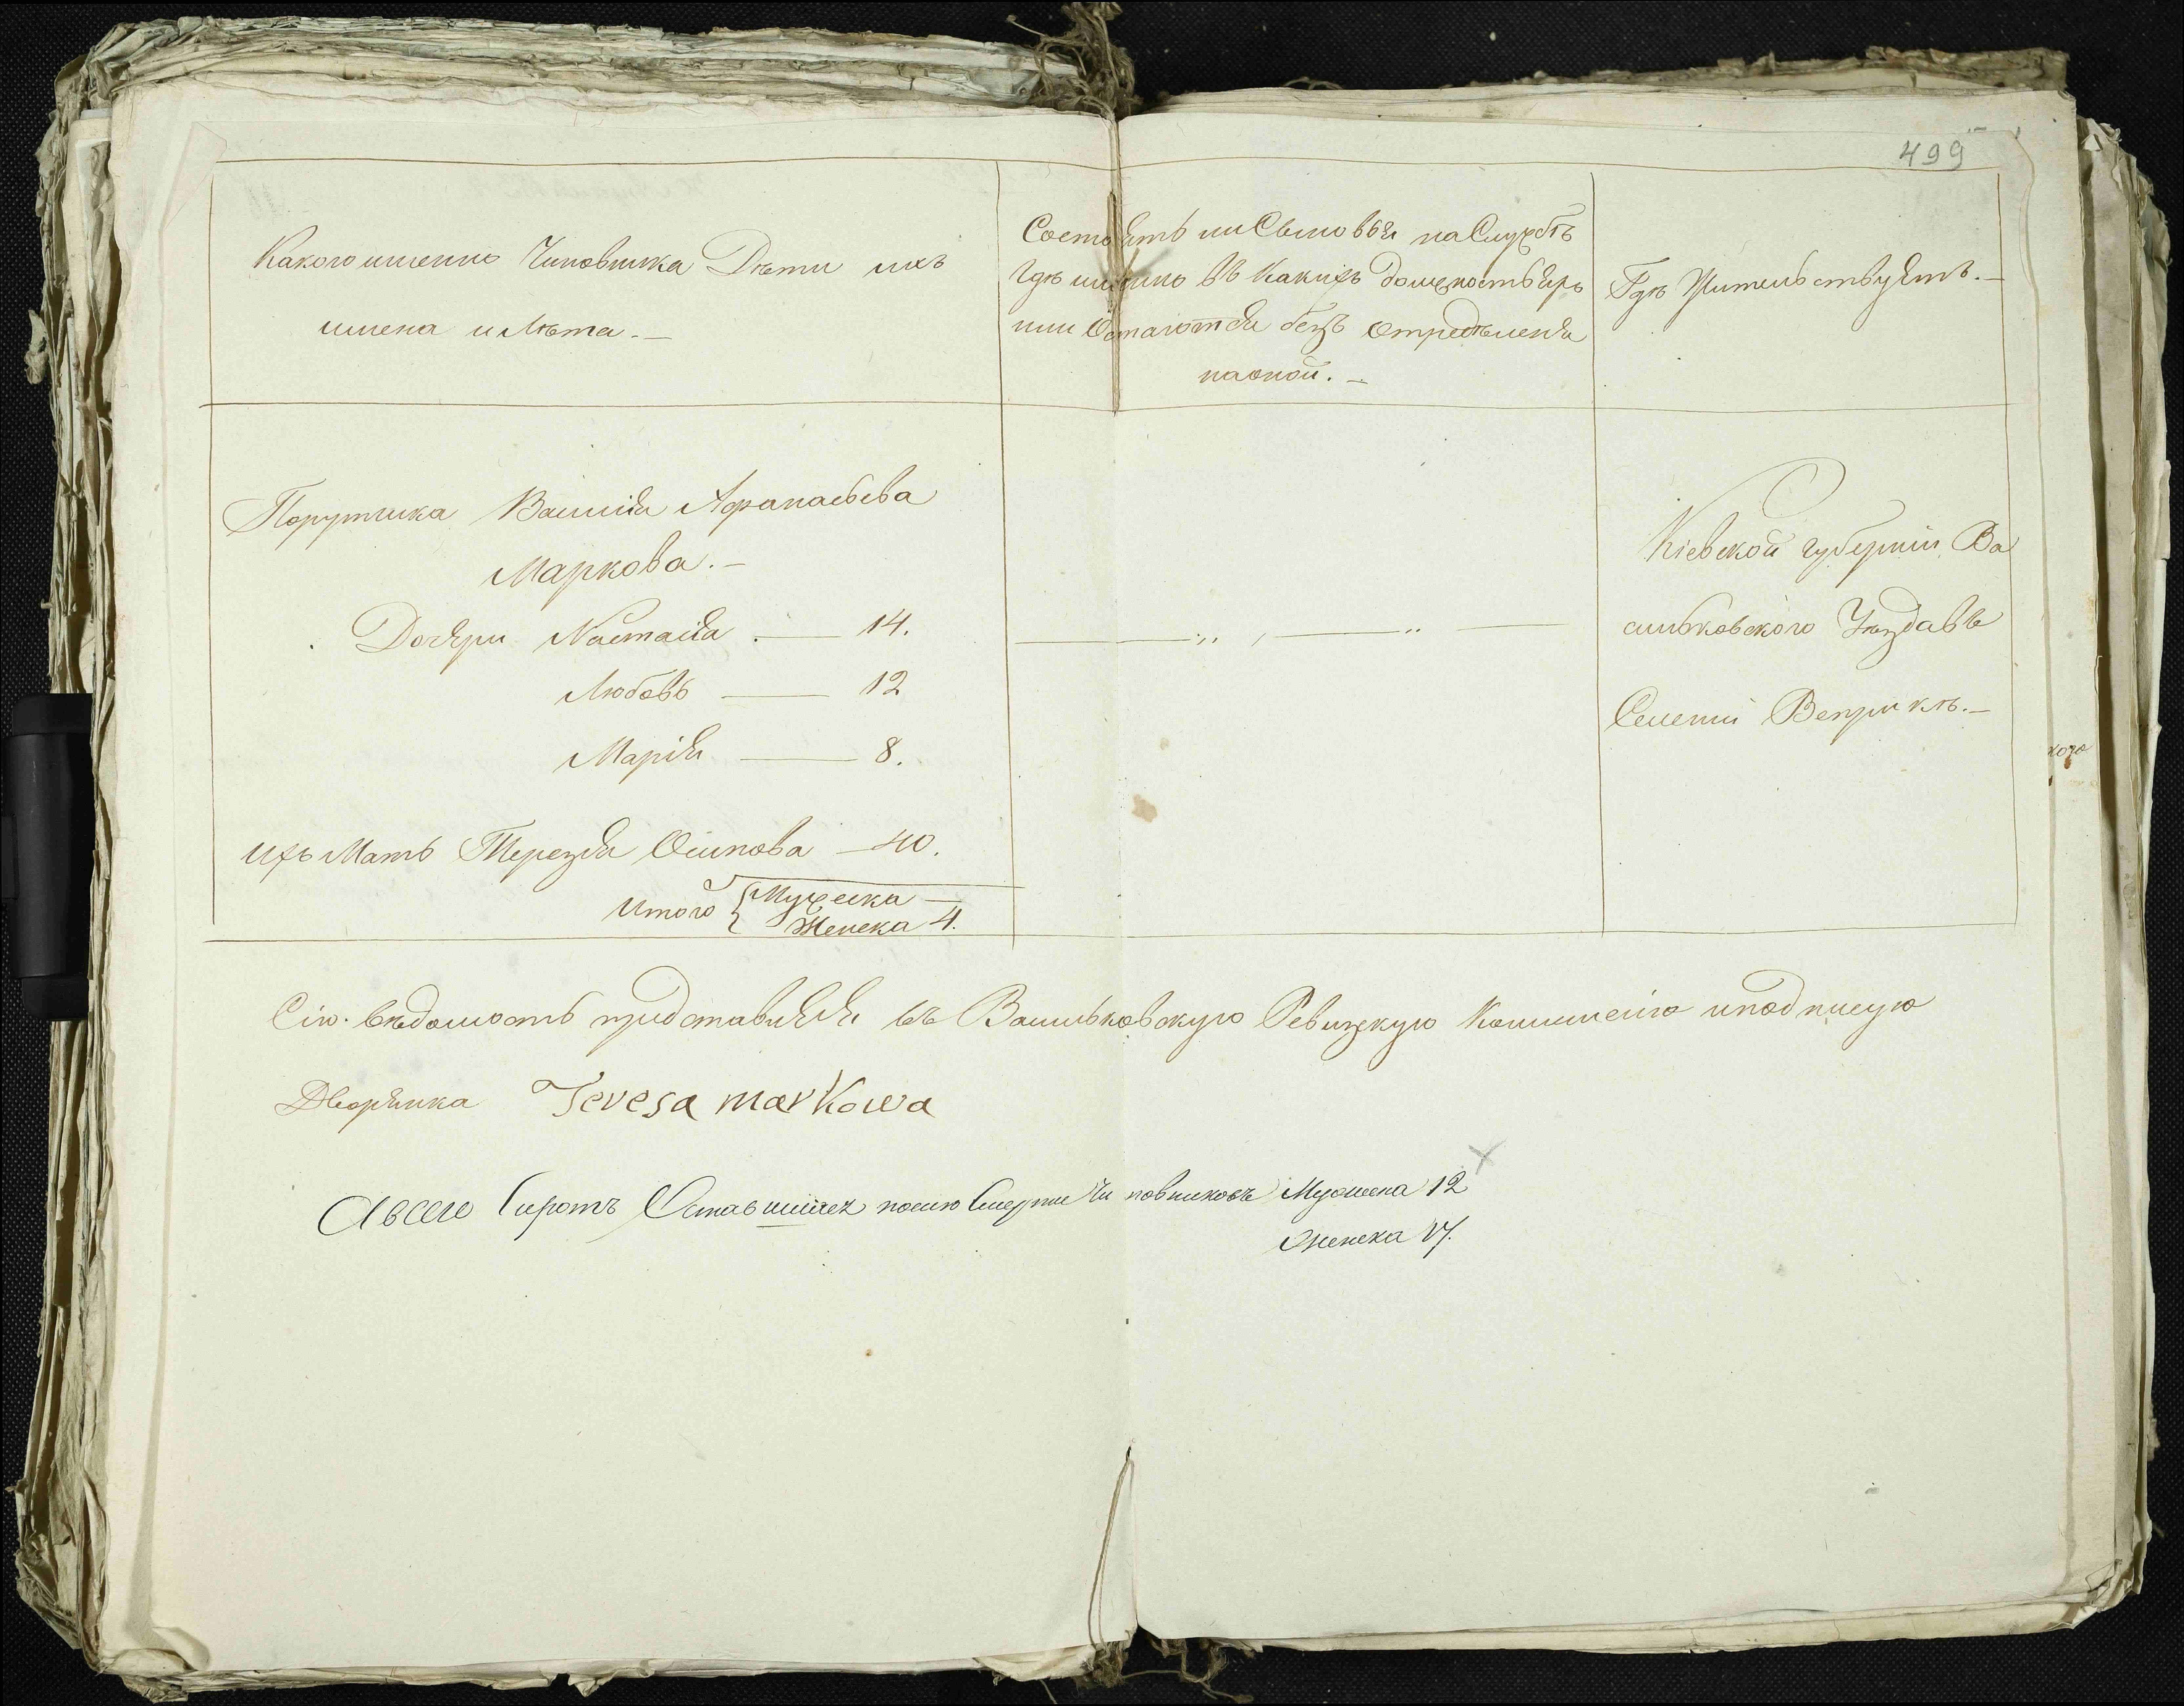 499
Какого именно Чиновника Дѣти ихъ
имена и Лѣта.—
Состоятъ ли Сыновья на Службѣ
гдѣ именно въ Какихъ должностьяхъ
или Остаются безъ Отредѣленія
на оной.—
Гдѣ Жительствуятъ.—
Порутчика Василія Афанасьева
Маркова.—
Дочери Настасія — 14.
Любовь — 12
Марія — 8.
Ихъ Мать Терезія Осипова — 40.
Итого { Мужеска —
Женска 4.
Кіевской губерніи Ва
сильковского Уѣзда въ
Селеніи Веприкѣ.—
Сію ведомость представляя въ Васильковскую Ревизкую Коммисію и подписую
Дворянка Teresa markowa
А всего Сиротъ Оставшихся после Смерти Чиновниковъ Мужеска 12
Женска 17.
кого